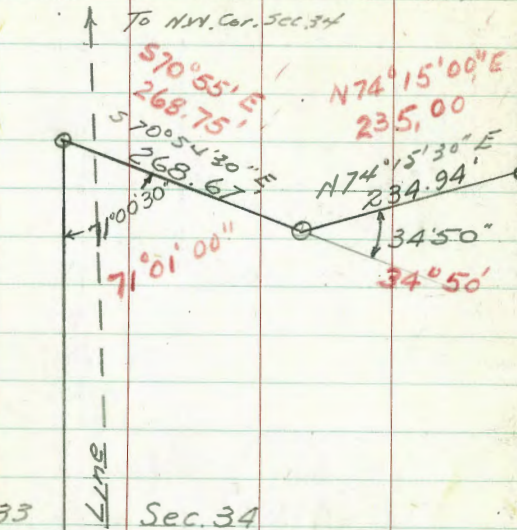 To N.W. Cor. Sec. 34
S70°55' E
268.75'
N74°15'00" E
235.00
S70°54'30" E
268.67'
N74°15'30" E
234.94'
71°00'30"
34°50"
71°01'00"
34°50'
33
Sec. 34